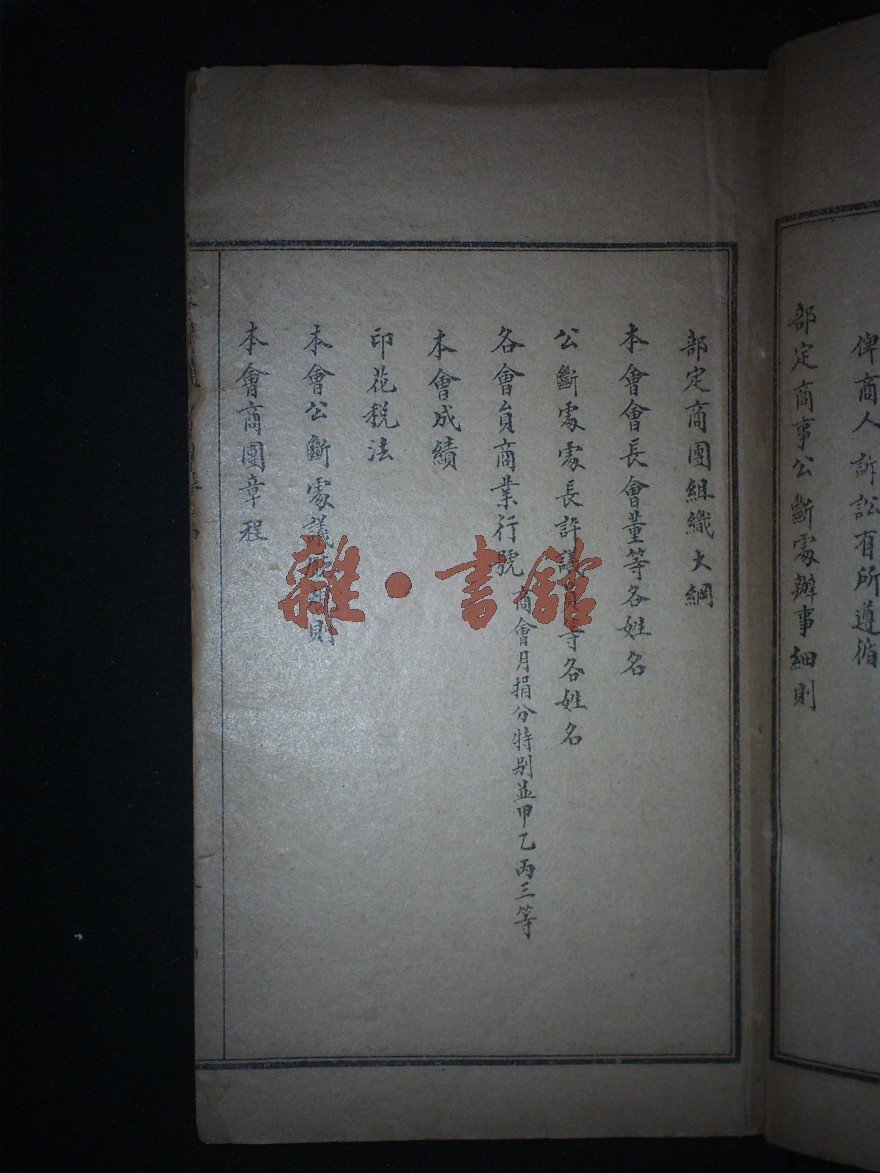 俾商人訴訟有所遵循
部定商事公斷處辦事細則
部定商團組織大綱
本會會長會董等各姓名
公斷處處長評議員等各姓名
各會員商業行號 商會月捐分特別並甲乙丙三等
本會成績
印花稅法
本會公斷處議細則
本會商團章程
雜·書館